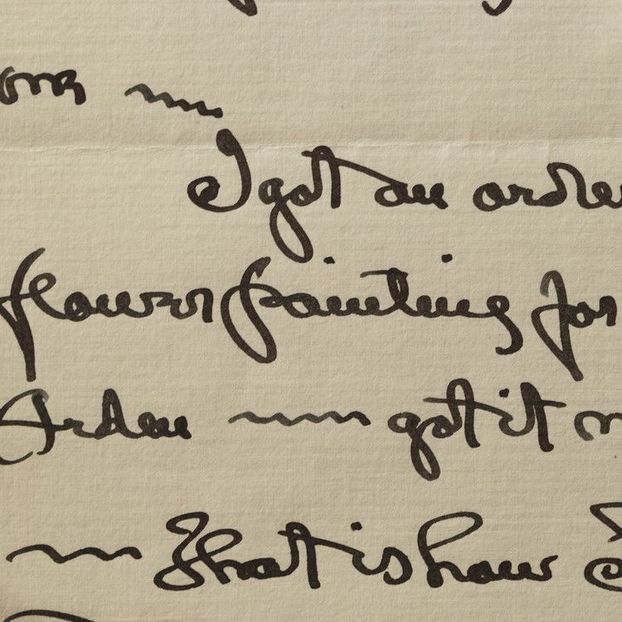 I got an orde
flower painting for
Arden ~ got it
~ That is how I